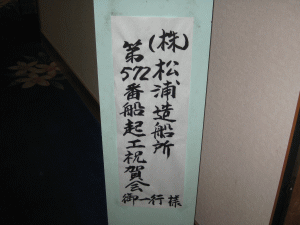 (株)松浦造船所
第572番船起工祝賀会
御一行様